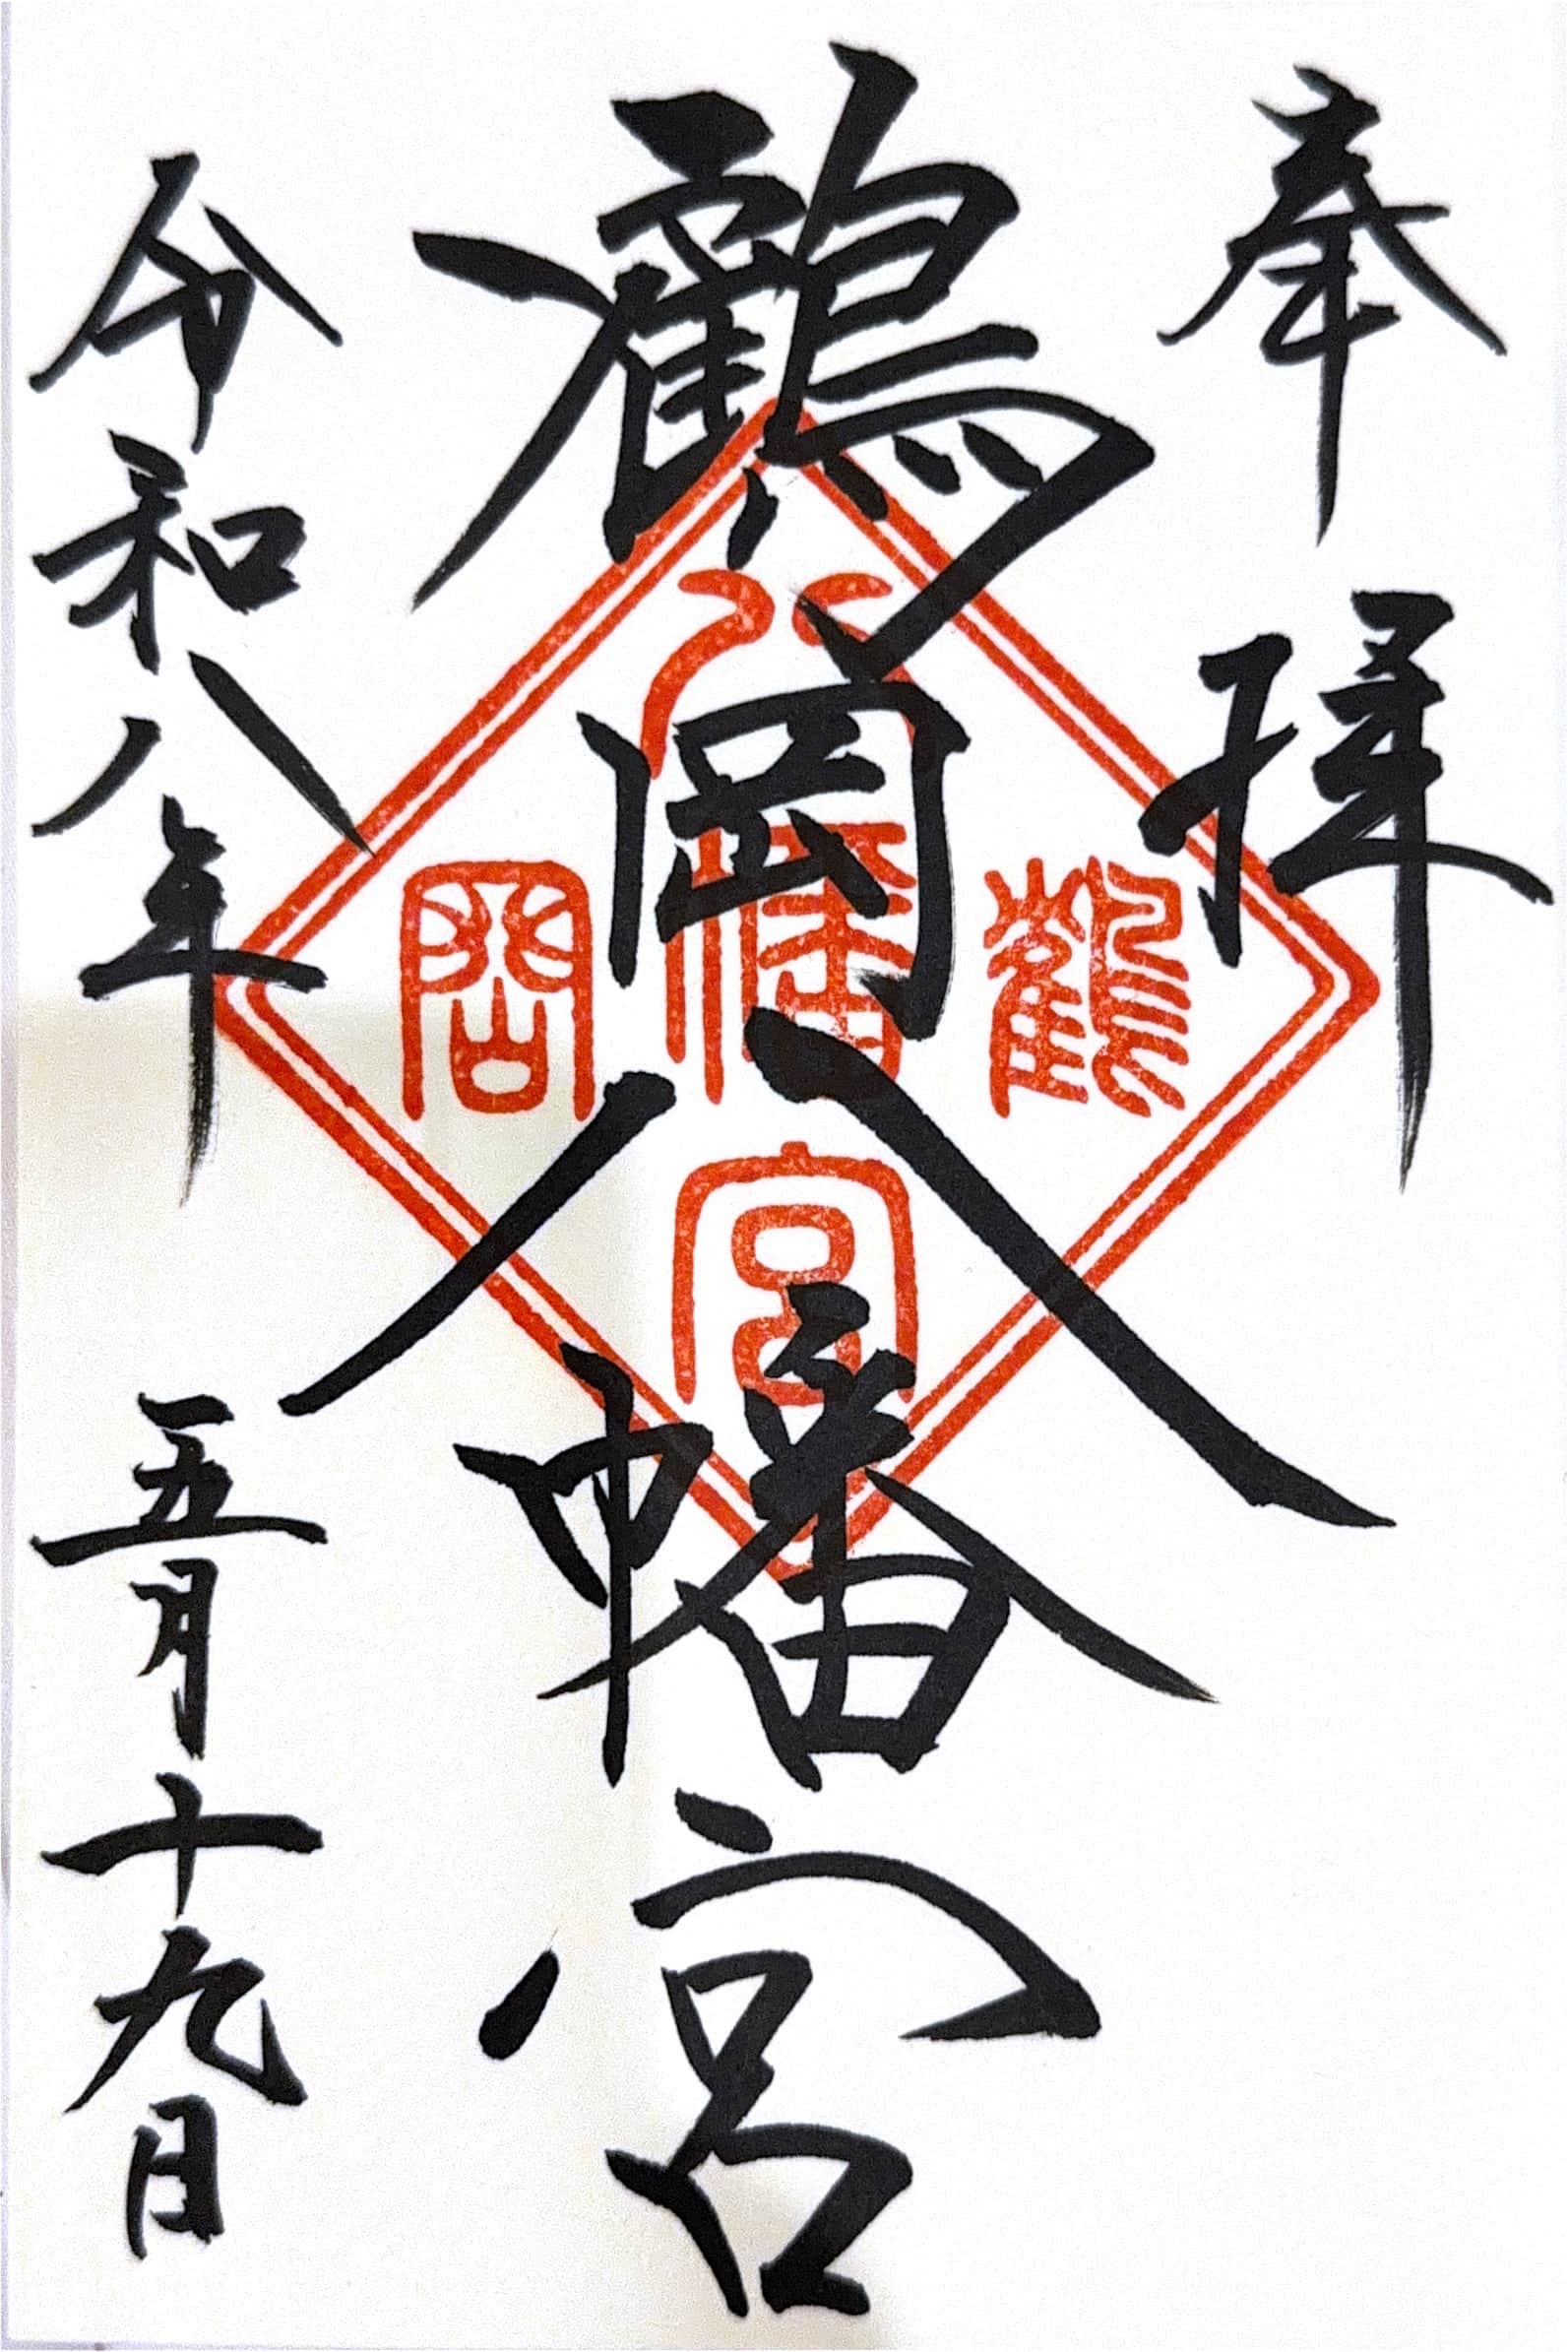 奉拝
鶴岡八幡宮
令和八年 五月十九日
鶴
八幡宮
岡